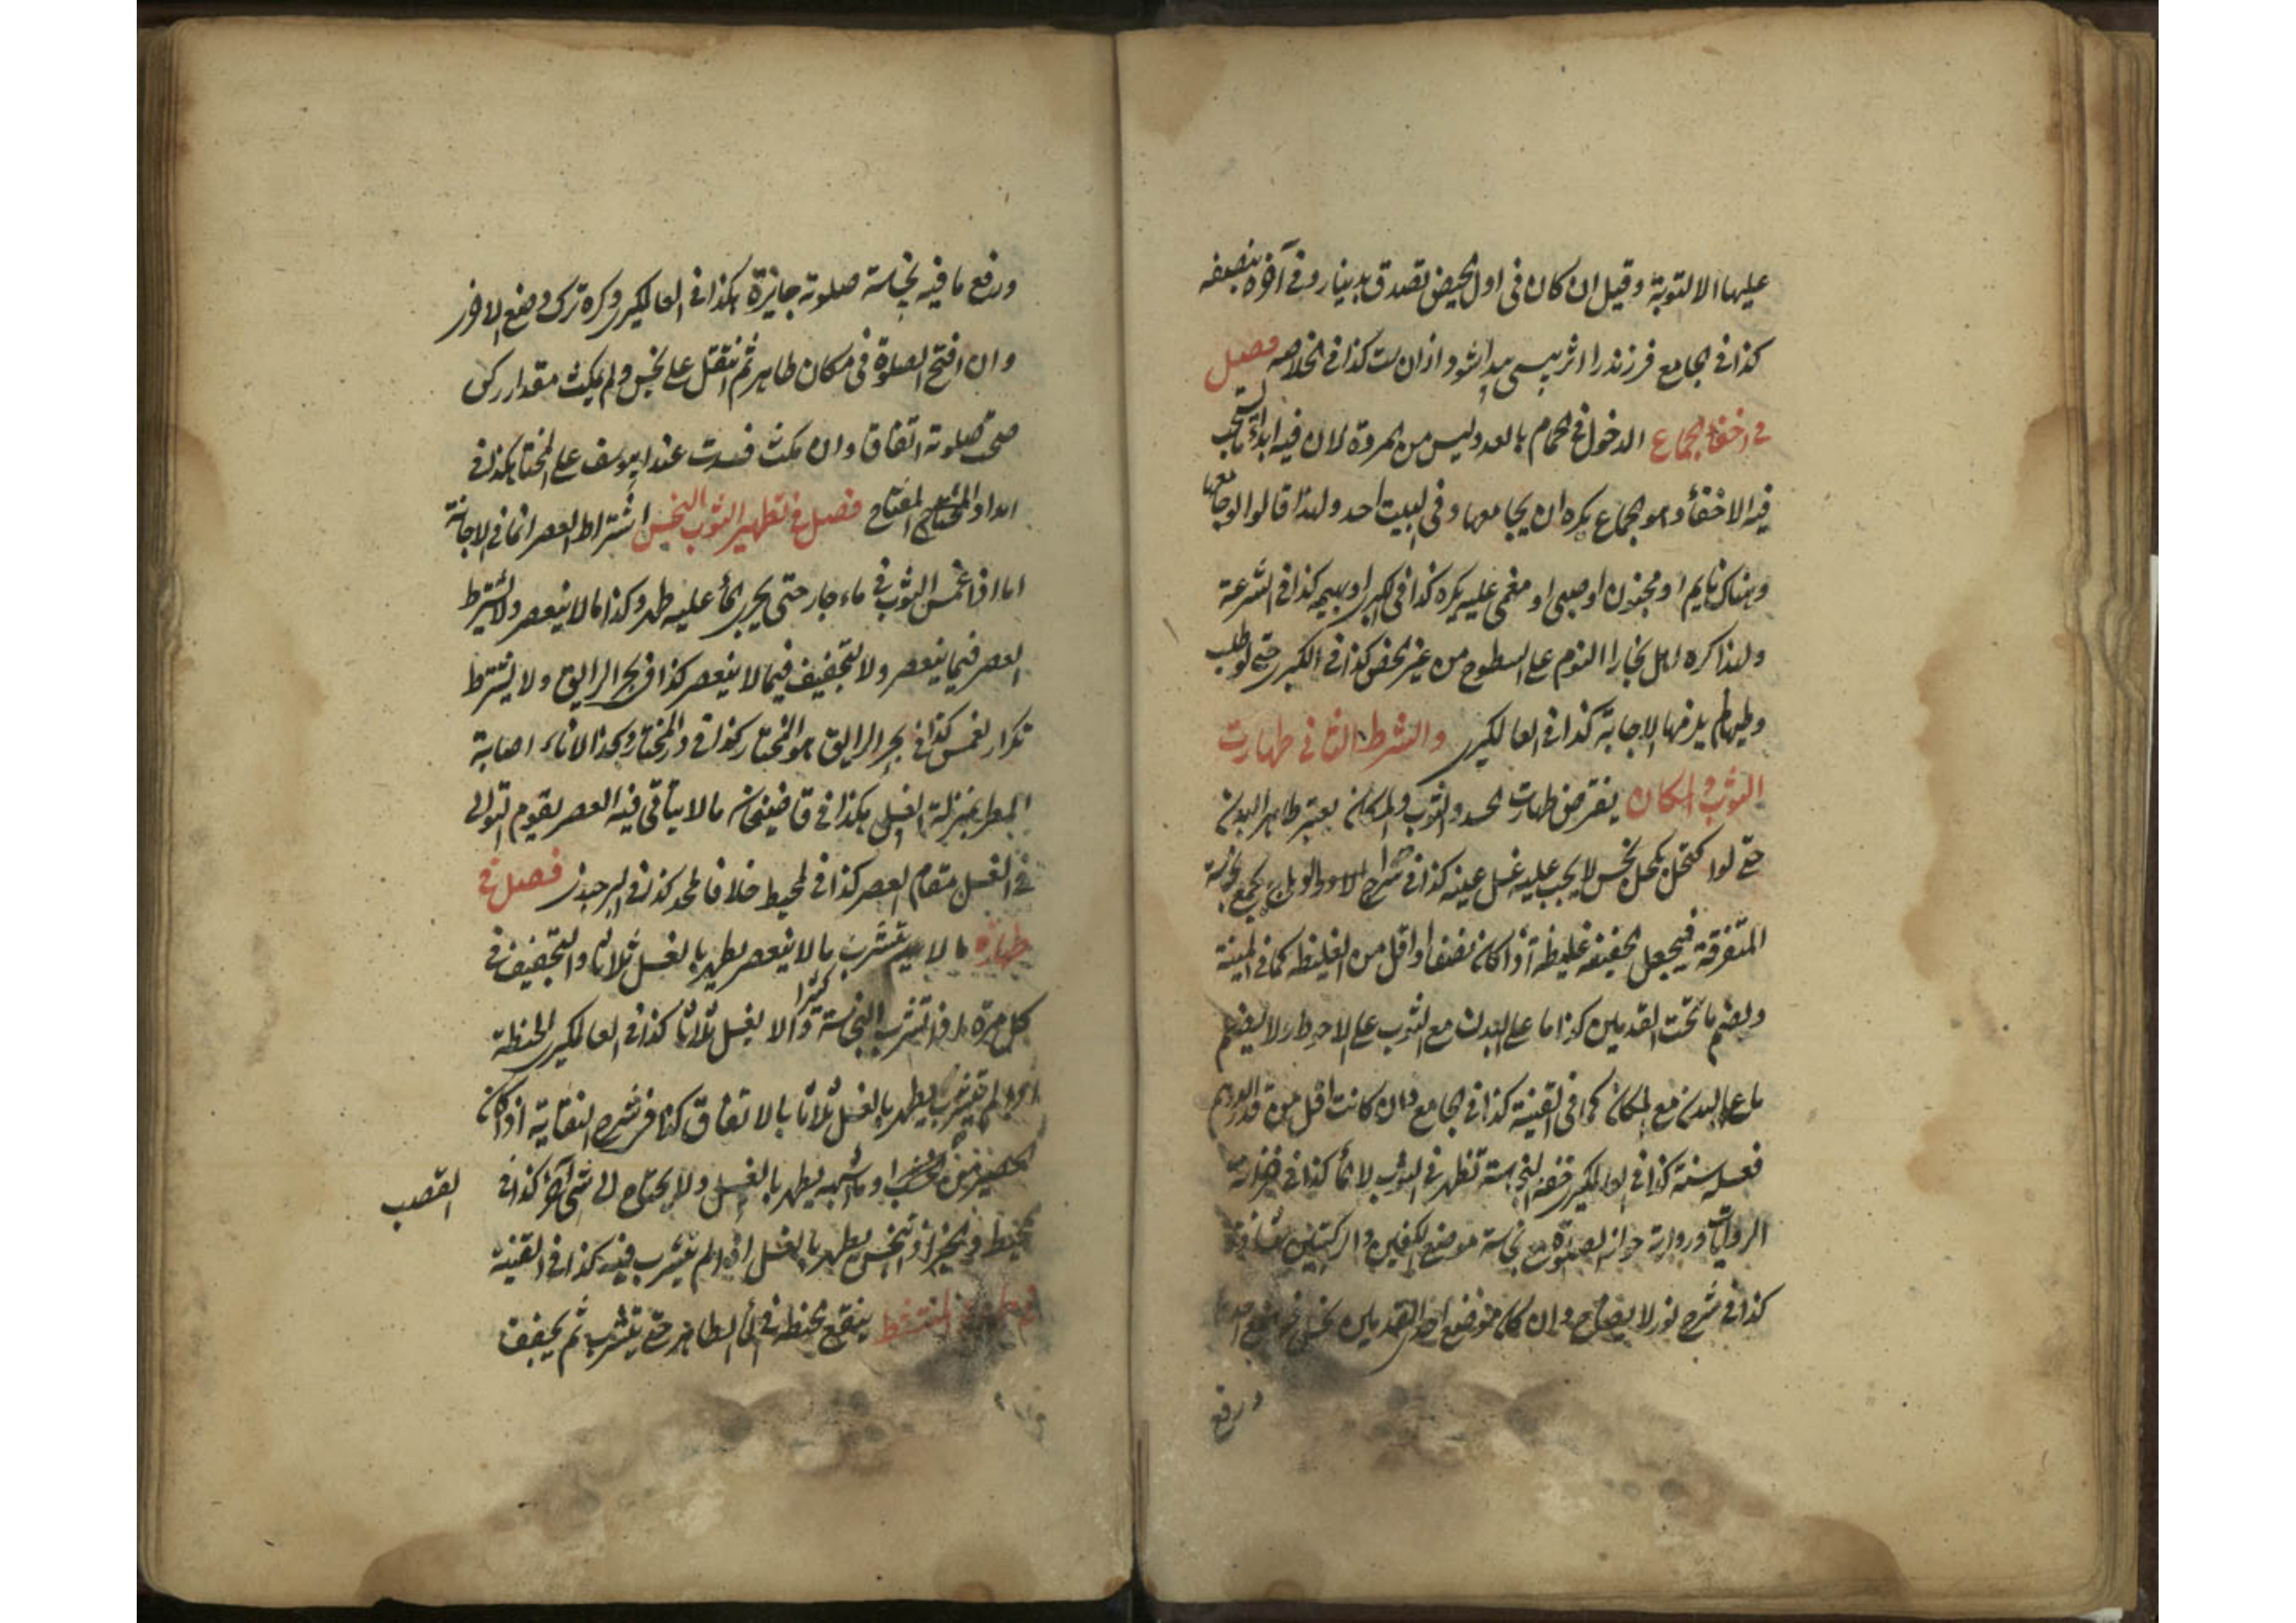 عليها الا التوبة وقيل ان كان فى اول الحيض تصدق بدينار وفى آخره بنصفه
كذا فى الجامع فرزند را اثر پيدا شود كذا فى الخلاصه فصل
فى اخفاء الجماع الدخول فى الحمام بالغد وليس من المروة لان فيه ابداء ما يستحب
فيه الاخفاء وهو الجماع يكره ان يجامعها وفى البيت احد ولهذا قالوا لو جامعها
وهناك نايم او مجنون او صبى او مغمى عليه يكره كذا فى الكبرى او بهيمه كذا فى الشرعة
ولهذا كره اهل بخارا النوم على السطوح من غير كذا فى الكبرى حتى لو طلب
وطيها لم يلزمها الاجابة كذا فى العالمكيرى والشرط الثانى طهارت
الثوب والمكان يفترض طهارت الجسد والثوب والمكان يعتبر ظاهر البدن
حتى لو اكتحل بكحل نجس لا يجب عليه غسل عينه كذا فى شرح الاوراد يجمع نجاسة
المتفرقة فيجعل الخفيفة غليظة اذا كان نصفا او اقل من الغليظة كما فى المنية
ويضم ما تحت القدمين كذا ما على البدن مع الثوب على الاحوط ولا يضم
ما على البدن مع المكان كما فى القنية كذا فى الجامع وان كانت اقل من قدر الدرهم
فغسله سنة كذا فى العالمكيرى النجاسة تظهر فى الثوب لا الماء كذا فى خزانة
الروايات ورواية جواز الصلوة مع نجاسة موضع الكفين والركبتين شاذة
كذا فى شرح نور الايضاح وان كان موضع احد القدمين نجس فوضع احدى
ورفع
ورفع ما فيه نجاسة صلوته جايزة هكذا فى العالمكيرى وكره ترك وضع الاخرى
وان افتتح الصلوة فى مكان طاهر ثم انتقل على نجس ولم يمكث مقدار ركن
صحت صلوته اتفاقا وان مكث فسدت عند ابيوسف على المختار هكذا فى
امداد الفتاح فصل فى تطهير الثوب النجس اشتراط العصر انما فى الاجانة
اما اذا غمس الثوب فى ماء جار حتى يجرى الماء عليه طهر وكذا ما لا ينعصر ولا يشترط
العصر فيما ينعصر ولا التجفيف فيما لا ينعصر كذا فى بحر الرايق ولا يشترط
تكرار الغمس كذا فى بحر الرايق هو المختار كذا فى در المختار وكذا الاناء اصابة
المطر بمنزلة الغسل هكذا فى قاضيخان ما لا يتأتى فيه العصر يقوم التوالى
فى الغسل مقام العصر كذا فى المحيط خلافا لمحمد كذا فى البرجندى فصل فى
طهارة ما لا يتشرب ما لا ينعصر يطهر بالغسل ثلاثا والتجفيف فى
كل مرة اذا تشرب النجاسة كثيرا والا يغسل ثلاثا كذا فى العالمكيرى الحنطة
لم تتشرب يطهر بالغسل ثلاثا بالاتفاق كذا فى شرح النقاية اذا كان
الحصير من القصب او ما اشبهه يطهر بالغسل ولا يحتاج الى شئ آخر كذا فى
المحيط اذا تنجس يطهر بالغسل اذا لم يتشرب فيه كذا فى القنية
ينقع الحنطة فى الماء الطاهر حتى يتشرب ثم يجفف